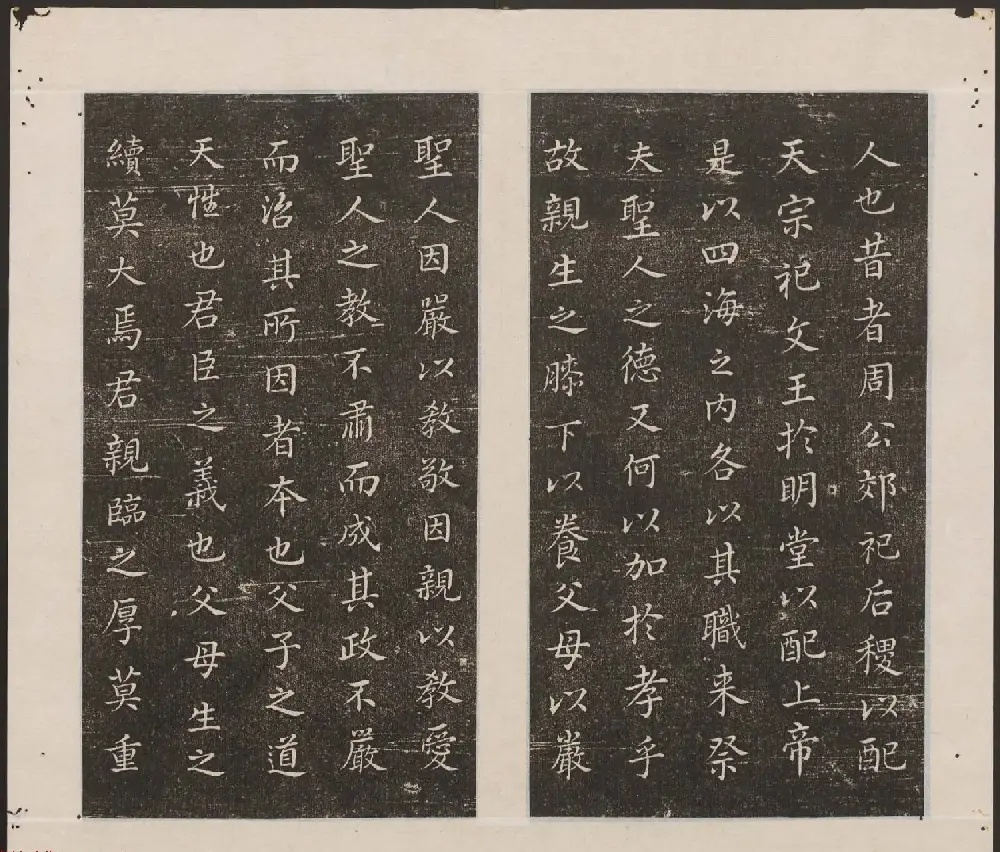 人也昔者周公郊祀后稷以配
天宗祀文王於明堂以配上帝
是以四海之内各以其職来祭
夫聖人之德又何以加於孝乎
故親生之膝下以養父母以嚴
聖人因嚴以教敬因親以教愛
聖人之教不肅而成其政不嚴
而治其所因者本也父子之道
天性也君臣之義也父母生之
續莫大焉君親臨之厚莫重